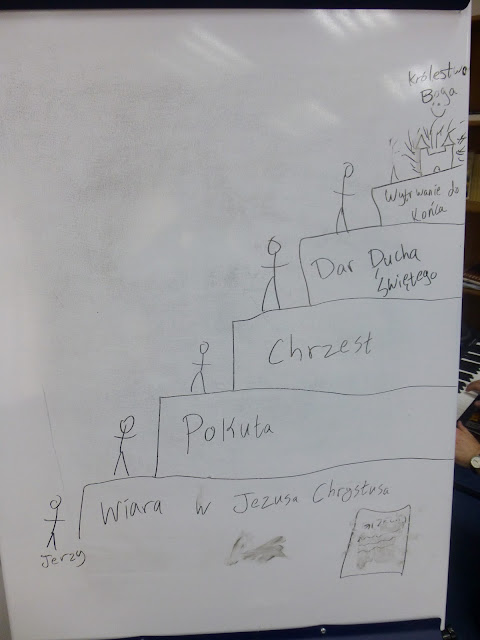 Królestwo
Boga
Wytrwanie do
Końca
Dar Ducha
Świętego
Chrzest
Pokuta
Wiara w Jezusa Chrystusa
Jerzy